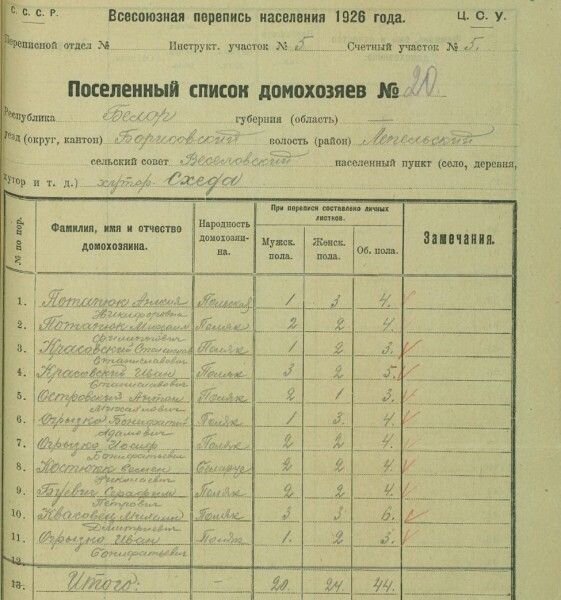 С. С. С. Р. Всесоюзная перепись населения 1926 года. Ц. С. У.
Переписной отдел № Инструкт. участок № 5 Счетный участок № 5.
Поселенный список домохозяев № 20.
Республика Белор губернии (область) —
уезд (округ, кантон) Борисовский волость (район) Лепельский
сельский совет Веселовский населенный пункт (село, деревня,
хутор и т. д.) хутор. Схеда
№ по пор. Фамилия, имя и отчество домохозяина. Народность домохозяина. При переписи составлено личных листков. Замечания.
Мужск. пола. Женск. пола. Об. пола.
1. Потапюк Никифоровна Польская 1 3 4.
2. Потапюк Михаил Филиппович Поляк 2 2 4.
3. Красовский Станислав Станиславович Поляк 1 2 3.
4. Красовский Иван Станиславович Поляк 3 2 5.
5. Островский Антон Михайлович Поляк 2 1 3.
6. Огрызко Бонифатий Адамович Поляк 1 3 4.
7. Огрызко Иосиф Бонифатьевич Поляк 2 2 4.
8. Костюк Семен Николаевич 2 2 4.
9. Буевич Серафим Петрович Поляк 2 2 4.
10. Квасовец Михаил Дмитриевич Поляк 3 3 6.
11. Огрызко Иван Бонифатьевич Поляк 1. 2 3.
12.
13. Итого: — 20. 24. 44.